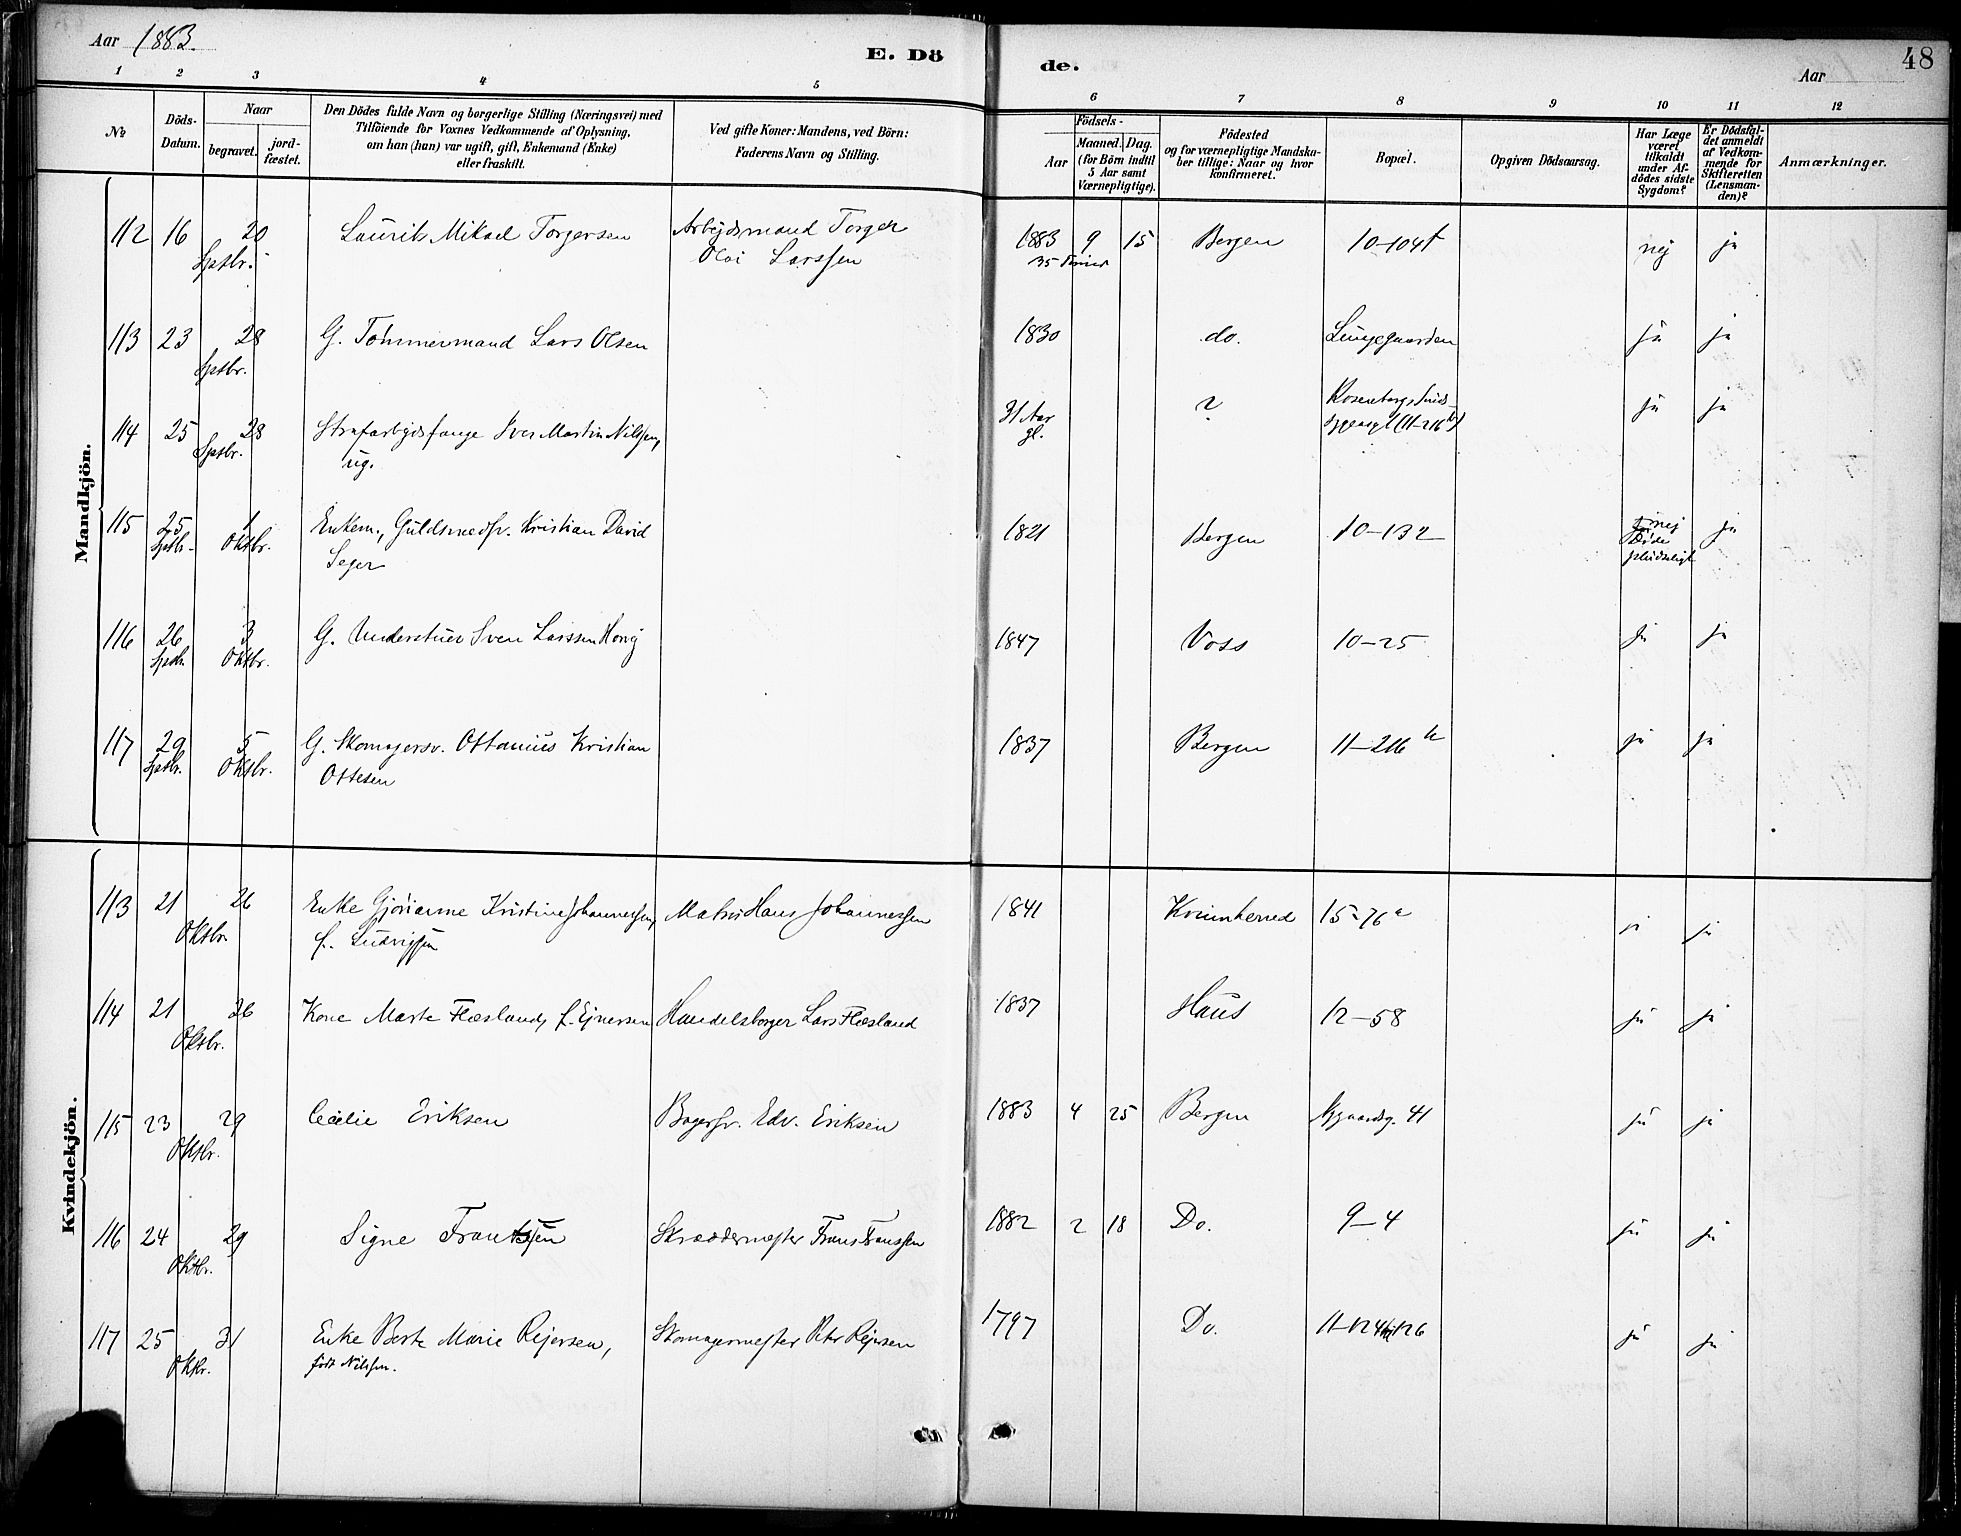 Aar 1883.
E. Dö
de.
Aar
48
1 2 3 4 5 6 7 8 9 10 11 12
No
Döds-
Datum.
Naar
begravet.
jord-
fæstet.
Den Dödes fulde Navn og borgerlige Stilling (Næringsvei) med
Tilföiende for Voxnes Vedkommende af Oplysning,
om han (hun) var ugift, gift, Enkemand (Enke)
eller fraskilt.
Ved gifte Koner: Mandens, ved Börn:
Faderens Navn og Stilling.
Födsels-
Aar
Maaned. Dag.
(for Börn indtil
5 Aar samt
Værnepligtige).
Födested
og for værnepligtige Mandska-
ber tillige: Naar og hvor
konfirmeret.
Bopæl.
Opgiven Dödsaarsag.
Har Læge
været
tilkaldt
under Af-
dödes sidste
Sygdom?
Er Dödsfal-
det anmeldt
af Vedkom-
mende for
Skifteretten
(Lensman-
den)?
Anmærkninger.
Mandkjön.
112 16 20 Laurits Mikael Torgersen Arbejdsmand Torger 1883 9 15 Bergen 10-104f nej ja
Sptbr. Olai Larssen 35
113 23 28 G. Tömmermand Lars Olsen 1830 do. Lungegaarden ja ja
Sptbr.
114 25 28 Strafarbejdsfange Iver Martin Nilssen, 31 Aar ? Rosenbergs ja ja
Sptbr. ug. gl. (11-216 b)
115 25 1 Enkem., Guldsmedsv. Kristian David 1821 Bergen 10-132 nej ja
Sptbr. Oktbr. Seger döde
pludseligt
116 26 3 G. Sven Larssen 1847 Voss 10-25 ja ja
Sptbr. Oktbr.
117 29 5 G. Skomagersv. Ottonius Kristian 1837 Bergen 11-216 b ja ja
Sptbr. Oktbr. Ottesen
Kvindekjön.
113 21 26 Enke Gjörianne Kristine Johannessen, Matros Hans Johannessen 1841 Kvinnherred 15-76 a ja ja
Oktbr. f. Ludvigsen
114 21 26 Kone Marte Flæsland, f. Ejnersen Handelsborger Lars Flæsland 1837 Haus 12-58 ja ja
Oktbr.
115 23 29 Cecilie Eriksen Bagersv. Edv. Eriksen 1883 4 25 Bergen Nygaardsg. 41 ja ja
Oktbr.
116 24 29 Signe Frantssen Skræddermester Frans Franssen 1882 2 18 Do. 9-4 ja ja
Oktbr.
117 25 31 Enke Berte Marie Rejersen, Skomagermester Petr Rejersen 1797 Do. 11-124 126 ja ja
Oktbr. født Nilssen.